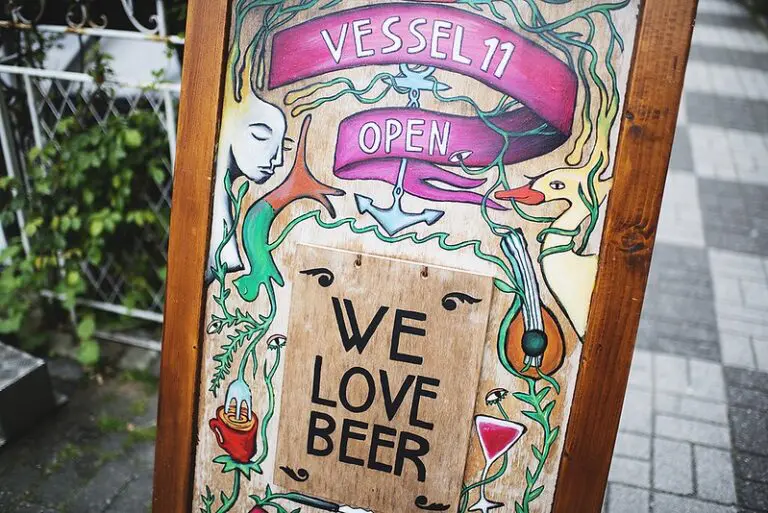 VESSEL 11
OPEN
WE
LOVE
BEER